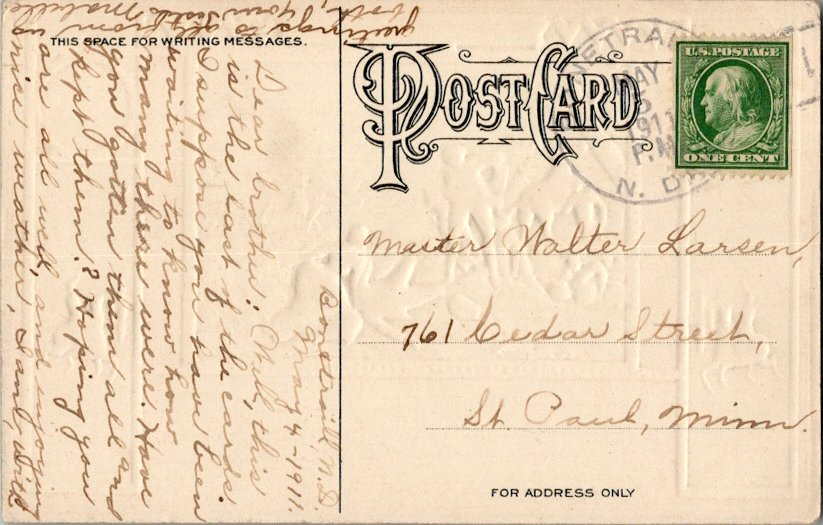 THIS SPACE FOR WRITING MESSAGES.
Bonetraill, N.D.
May 4 - 1911.
Dear brother: Well, this
is the last of the cards.
I suppose you have been
waiting to know how
many there were. Have
you gotten them all and
kept them? Hoping you
are all well, and enjoying
nice weather, I am, with
greetings to all from us
both, Your Sister Matilda
POST CARD
NETRAI
MAY
5
1911
P.M.
N. D.
U.S. POSTAGE
ONE CENT
Master Walter Larsen,
761 Cedar Street,
St. Paul, Minn.
FOR ADDRESS ONLY